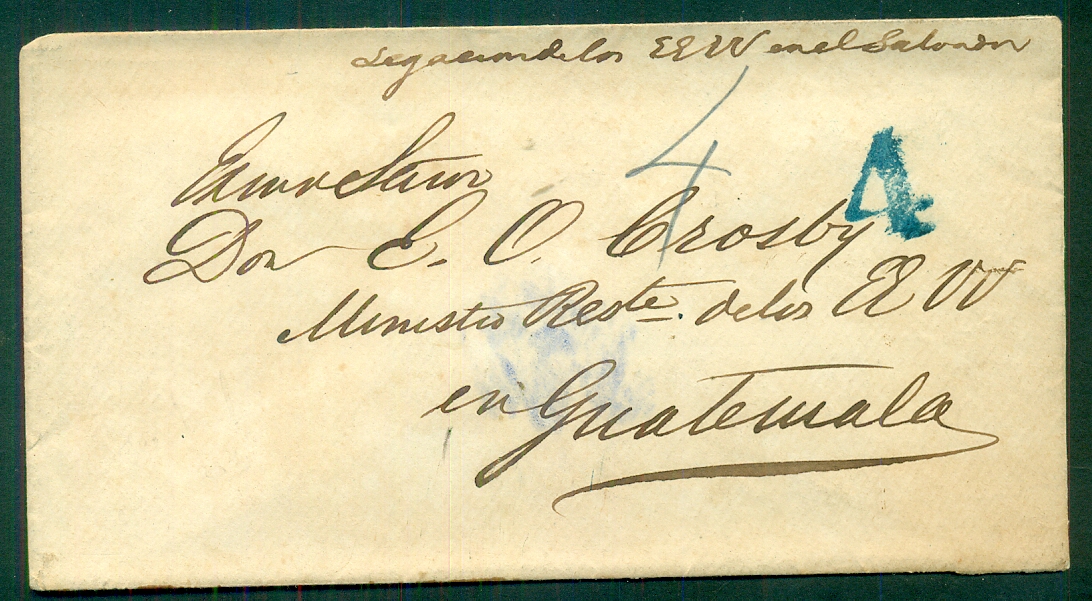 Legacion de los EE UU en el Salvador
4
4
Exmo Señor
Don E. O. Crosby
Ministro Reste. de los EE UU
en Guatemala